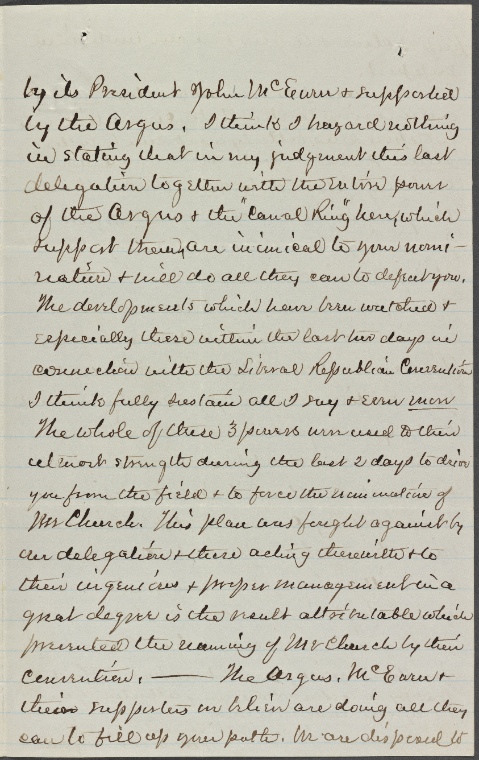 by its President John McEwen & supported
by the Argus. I think I hazard nothing
in stating that in my judgment this last
delegation together with the entire power
of the Argus & the "Canal Ring" here, which
support them, are inimical to your nomi-
nation & will do all they can to defeat you.
The developments which have been watched &
especially these within the last two days in
connection with the Liberal Republican Convention
I think fully sustain all I say & even more
The whole of these 3 powers were used to their
utmost strength during the last 2 days to drive
you from the field & to force the nomination of
Mr Church. This plan was fought against by
our delegation & those acting therewith & to
their ingenious & proper management in a
great degree is the result attributable which
prevented the naming of Mr Church by their
convention. — The Argus, McEwen &
their supporters we believe are doing all they
can to fill up your path. We are disposed to